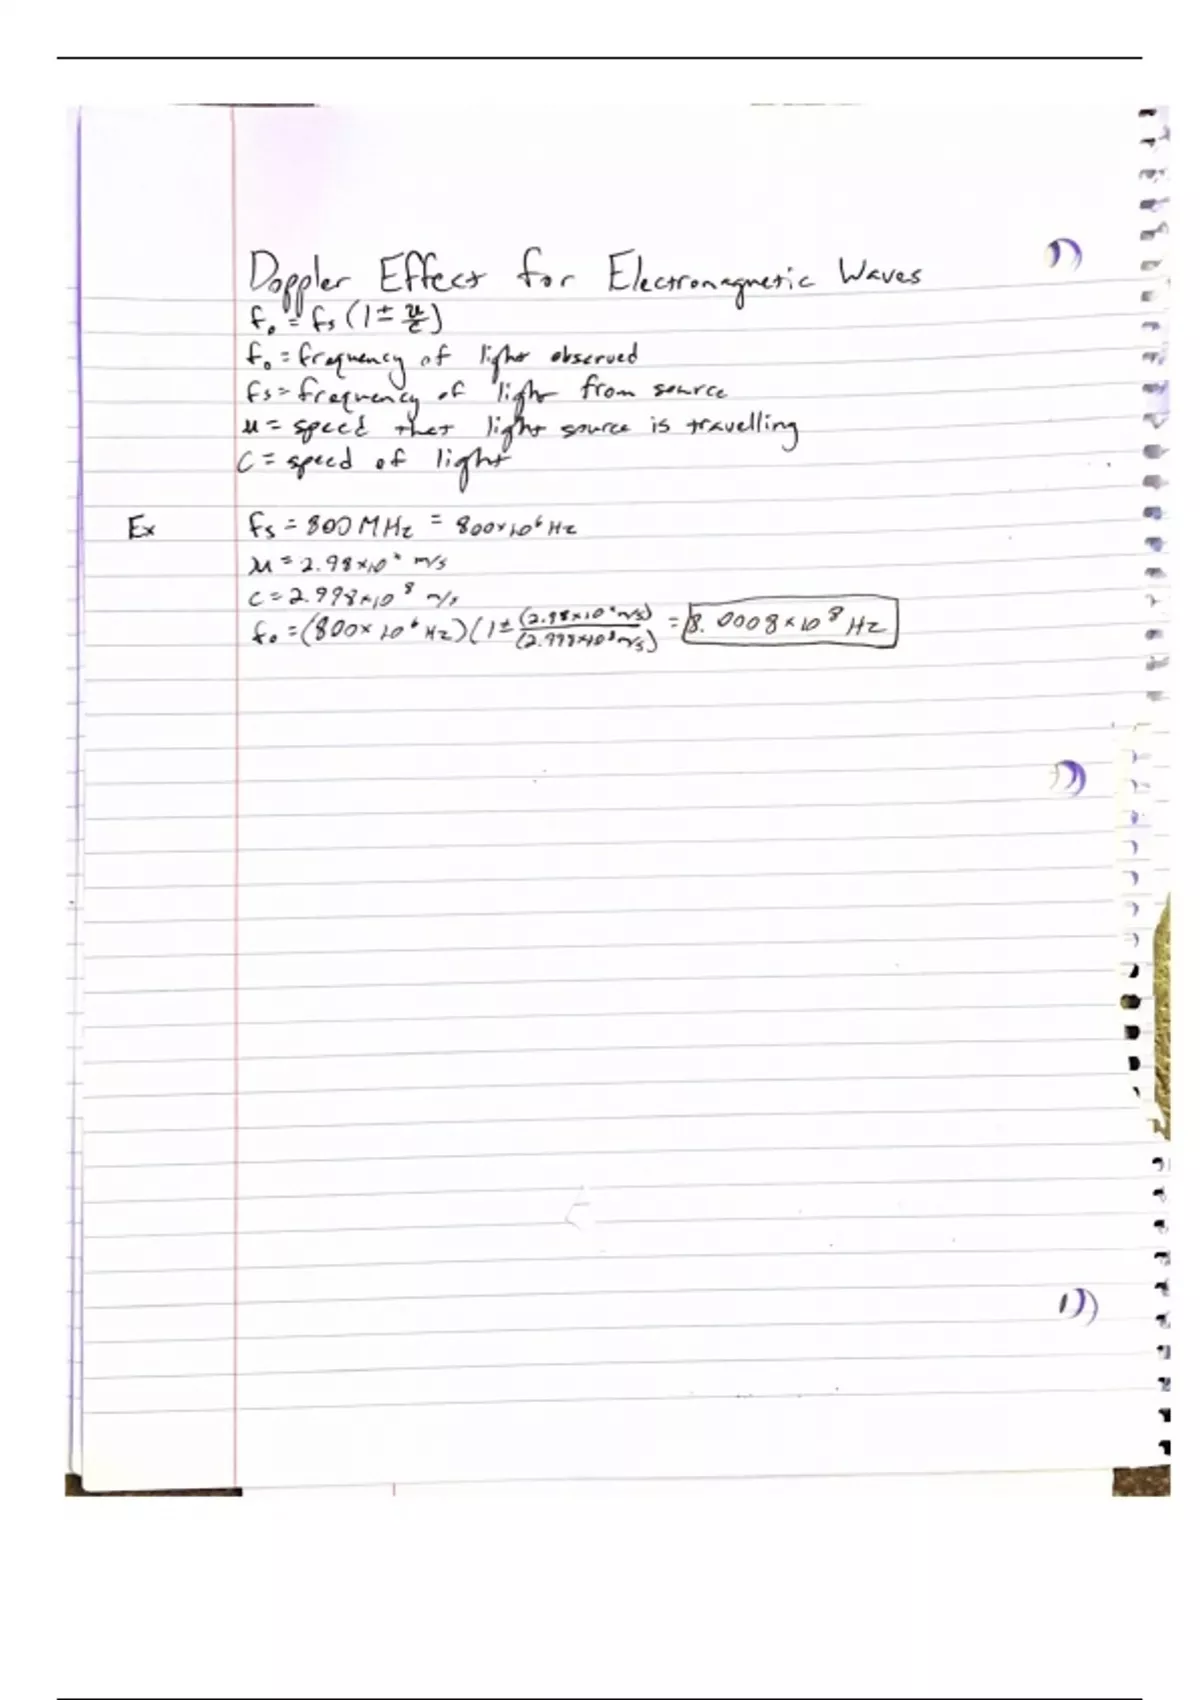 Doppler Effect for Electromagnetic Waves
f₀ = fs (1 ± u/c)
f₀ = frequency of light observed
fs = frequency of light from source
u = speed that light source is travelling
C = speed of light
Ex fs = 800 MHz = 800×10⁶ Hz
u = 2.98×10⁴ m/s
c = 2.998×10⁸ m/s
f₀ = (800×10⁶ Hz)(1 ± (2.98×10⁴ m/s)/(2.998×10⁸ m/s) = 8.0008×10⁸ Hz